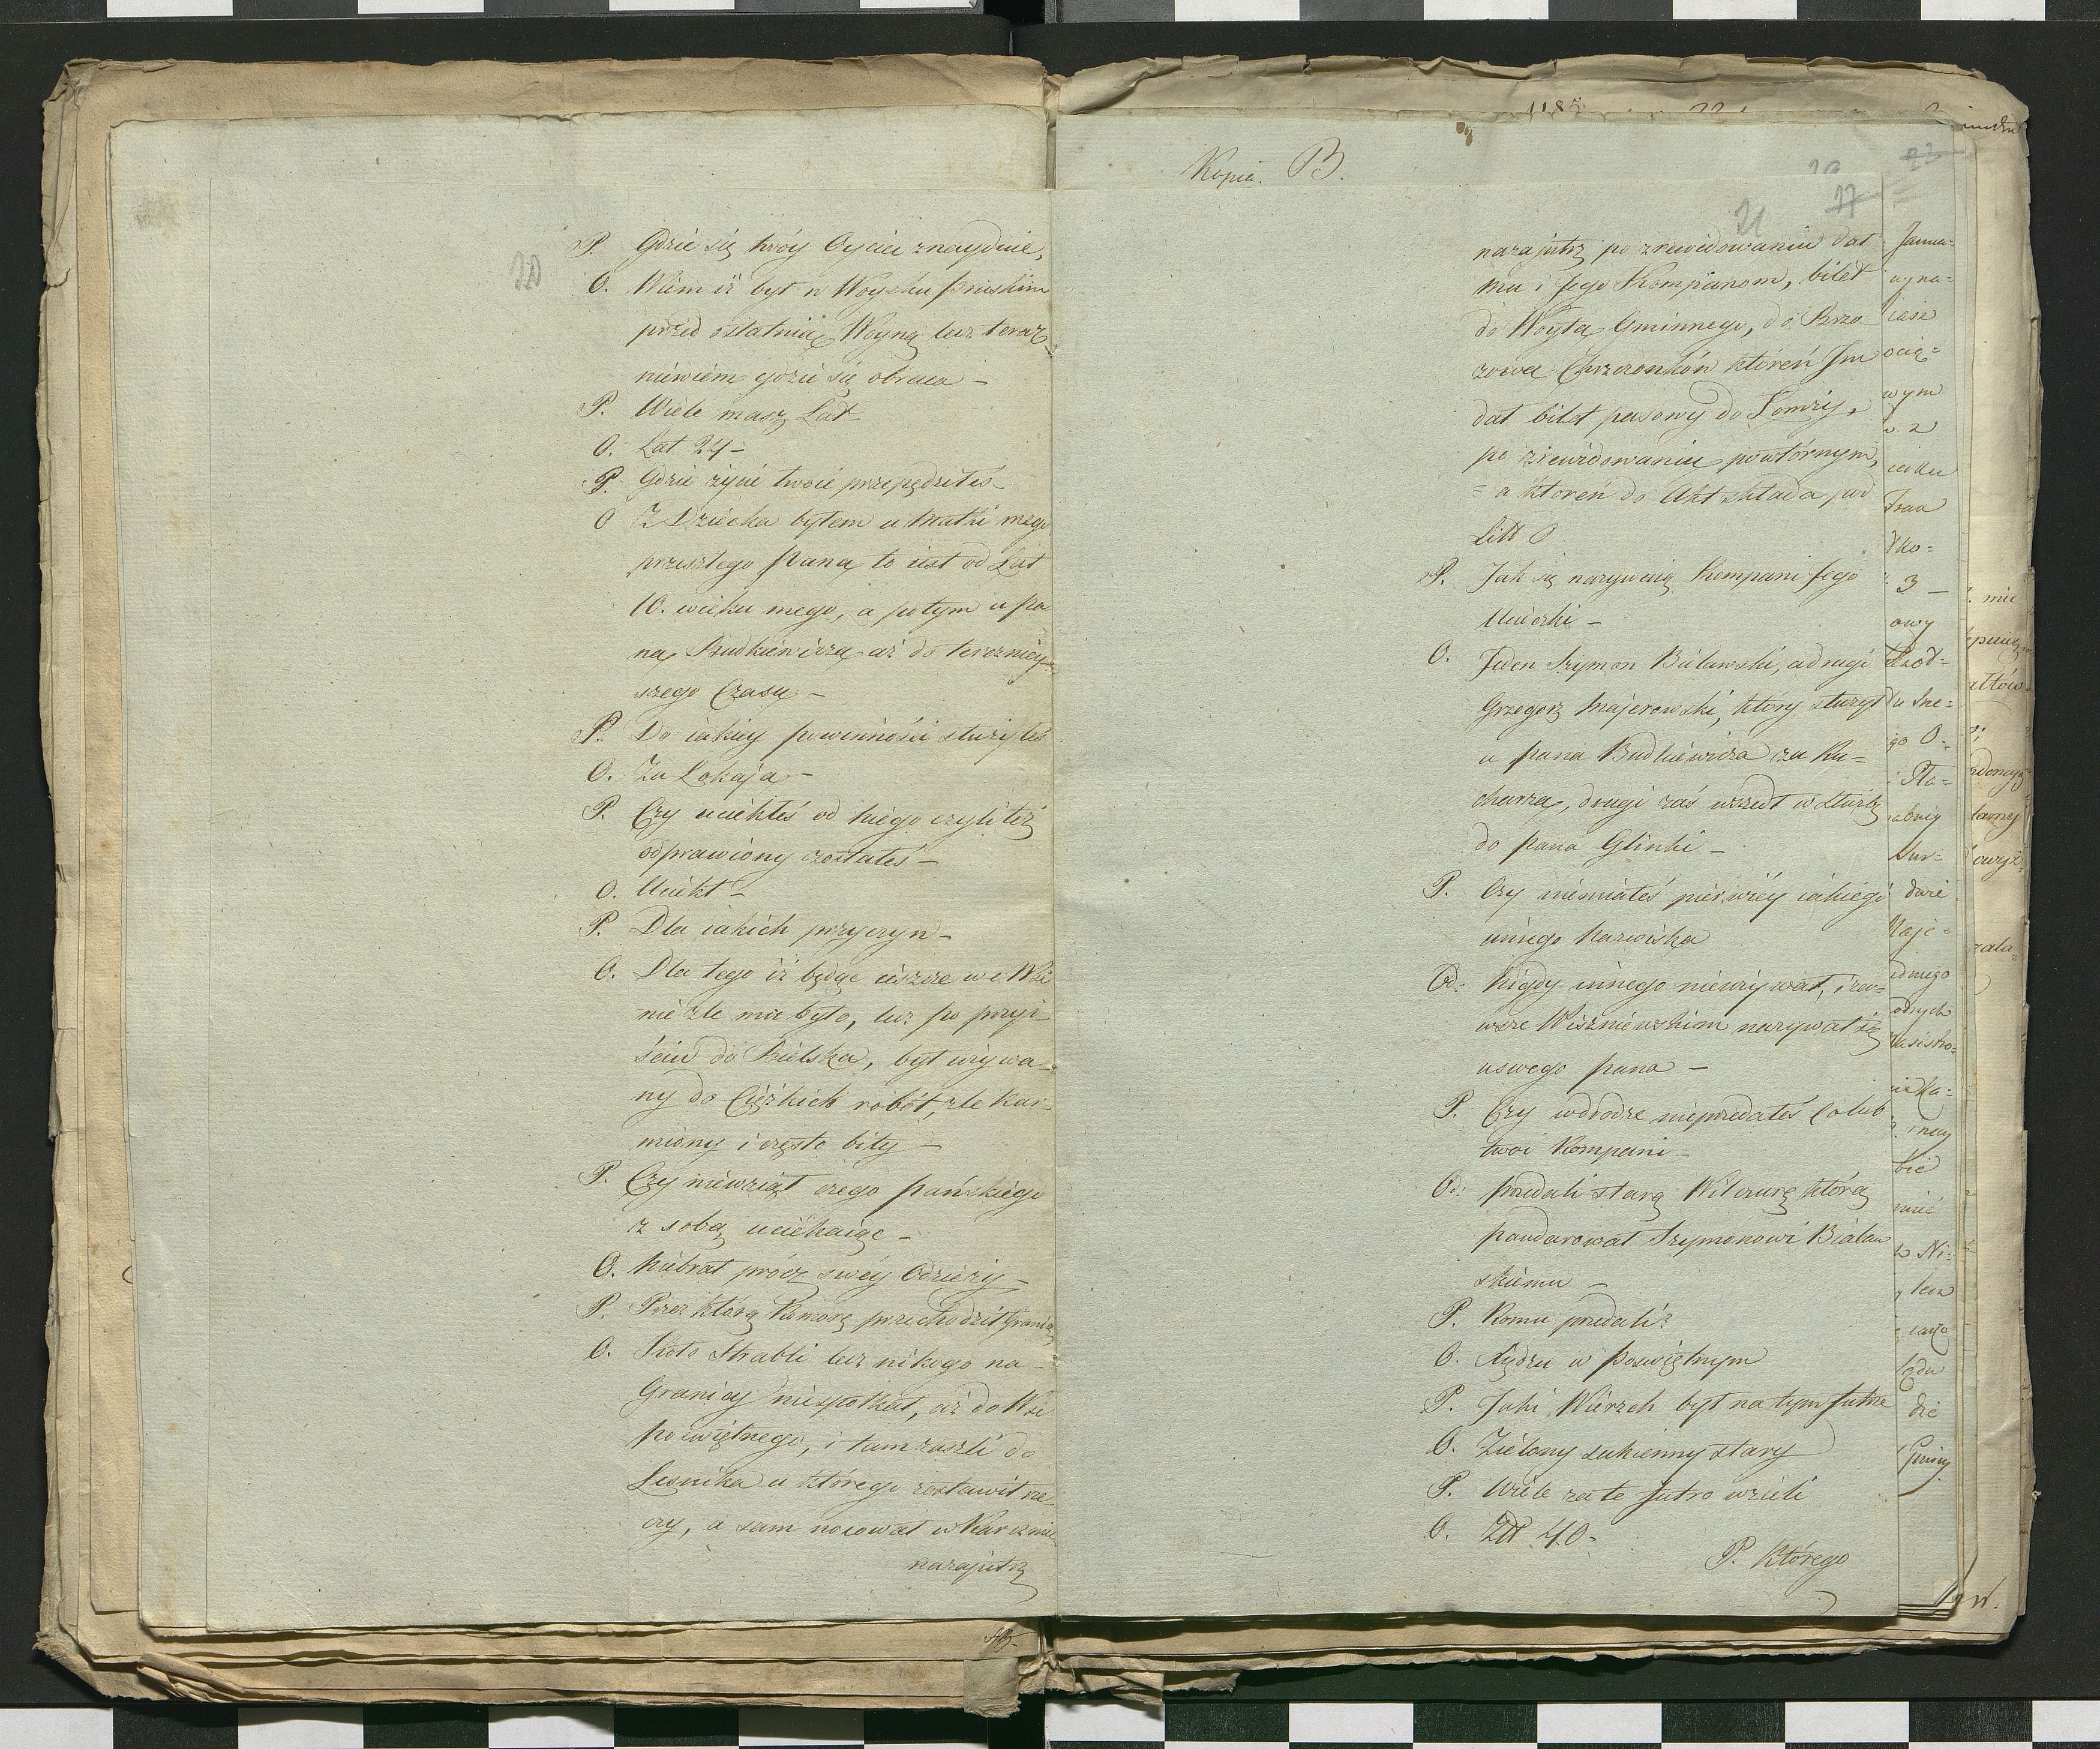 20
P. Gdzie się twóy Oyciec znayduie,
O. Wiém iż był w Woysku pruskim
przed ostatnią Woyną lecz teraz
niéwiém gdzie się obraca –
P. Wiele masz Lat
O. Lat 24 –
P. Gdzie życie twoie przepędziłeś –
O Z Dziecka byłem u Matki mego
przeszłego Pana, to iest od Lat
10. wieku mego, a potym u Pa
na Budkiewicza aż do teraznięy
szego Czasu –
P. Do iakiéy powinności służyłeś
O. Za Lokaja –
P. Czy uciekłeś od niégo czyli też
odprawiony zostałeś –
O. Uciékł –
P. Dla iakich przyczyn –
O. Dla tego iż będąc ieszcze we Wsi
nie źle mu było, lecz po przyi
ściu do Bielska, był używa=
ny do Ciężkich robót, źle kar=
miony i często bity –
P. Czy niéwziął czego Pańskiégo
z sobą uciékaiąc –
O. Niébrał prócz swéy Odzieży –
P. Przez którą Komorę przechodził Granicę
O. Koło Strabli lecz nikogo na –
Granicy niéspotkał, aż do Wsi
poswiętnego, i tam zaszli do
Lesnika u którego zostawił rze
czy, a sam nocował w Karczmie
nazajutrz
Kopia. B.
21
17
nazajutrz po zrewidowaniu dał
mu i Jego Kompanom, bilet
do Woyta Gminnego, do Brzo
zowa Chrzczonków któreń Im
dał bilet pasowy do Łomży,
po zrewidowaniu powtórnym,
= a któreń do Akt składa pod
Litt O
P. Jak się nazywaią Kompani Jego
Ucieczki –
O. Jeden Szymon Biéławski, a drugi
Grzegorz Majerowski, który służył
u Pana Budkiéwicza za Ku=
charza, drugi zaś wszedł w służbę
do Pana Glinki –
P. Czy niémiałeś piérwiéy iakiégo
innego Nazwiska
Od: Nigdy innego niéużywał, i zaw=
wsze Wiszniewskim nazywał się
u swego Pana –
P. Czy wdrodze nieprzedałeś Co lub
twoi Kompani –
Od: przedali starą Wilczurę którą
podarował Szymonowi Biaław
skiému –
P. Komu przedali?
O. Xiędzu w Poswiętnym
P. Jaki Wiérzch był na tym futrze
O. Ziélony sukienny stary
P. Wiele za te futro wzieli
O. Złł 40 –
P. Którego